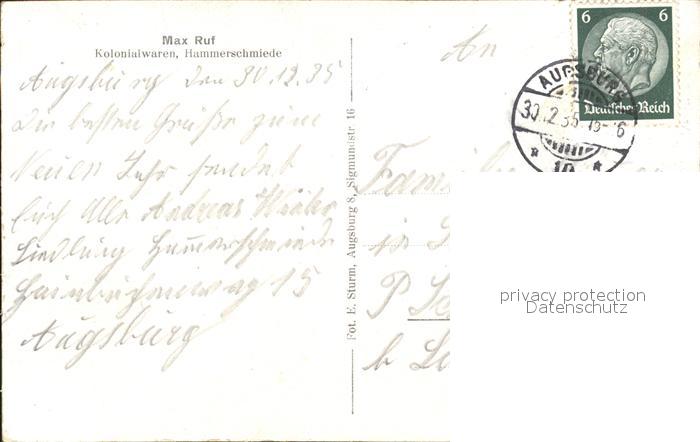 Max Ruf
Kolonialwaren, Hammerschmiede
Augsburg den 30.12.35
Die besten Grüße zum
Neuen Jahr sendet
Euch Alle Andreas
Siedlung Hammerschmiede
Hainbuchenweg 15
Augsburg
Fot. E. Sturm, Augsburg 8, Sigmundstr 16
An
Fam
P
b
6 6
Deutsches Reich
AUGSBURG
10
privacy protection
Datenschutz